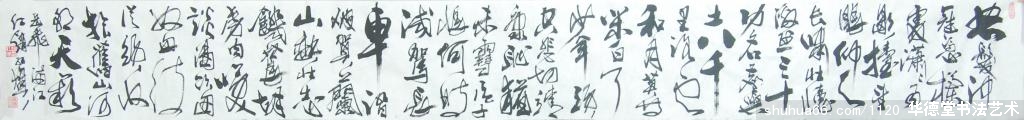 怒髮衝
冠憑欄
處瀟瀟雨
歇擡望
眼仰天
長嘯壯懷
激烈三十
功名塵與
土八千
里路雲
和月莫等
閒白了
少年頭
空悲切靖
康恥猶
未雪臣子
恨何時
滅駕長
車踏
破賀蘭
山缺壯志
饑餐胡
虜肉笑
談渴飲匈
奴血待
從頭收
拾舊山河
朝天闕
岳飛滿江
紅
shuhua66.com/1120 华德堂书法艺术